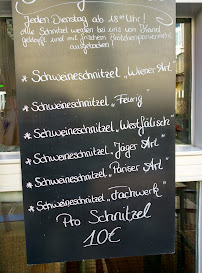 Jeden Dienstag ab 18⁰⁰ Uhr!
Alle Schnitzel werden bei uns von Hand
geklopft und mit frischem
ausgebacken!
* Schweineschnitzel „Wiener Art"
* Schweineschnitzel „Feurig"
* Schweineschnitzel „Westfälisch"
* Schweineschnitzel „Jäger Art"
* Schweineschnitzel „Pariser Art"
* Schweineschnitzel „Fachwerk"
Pro Schnitzel
10€